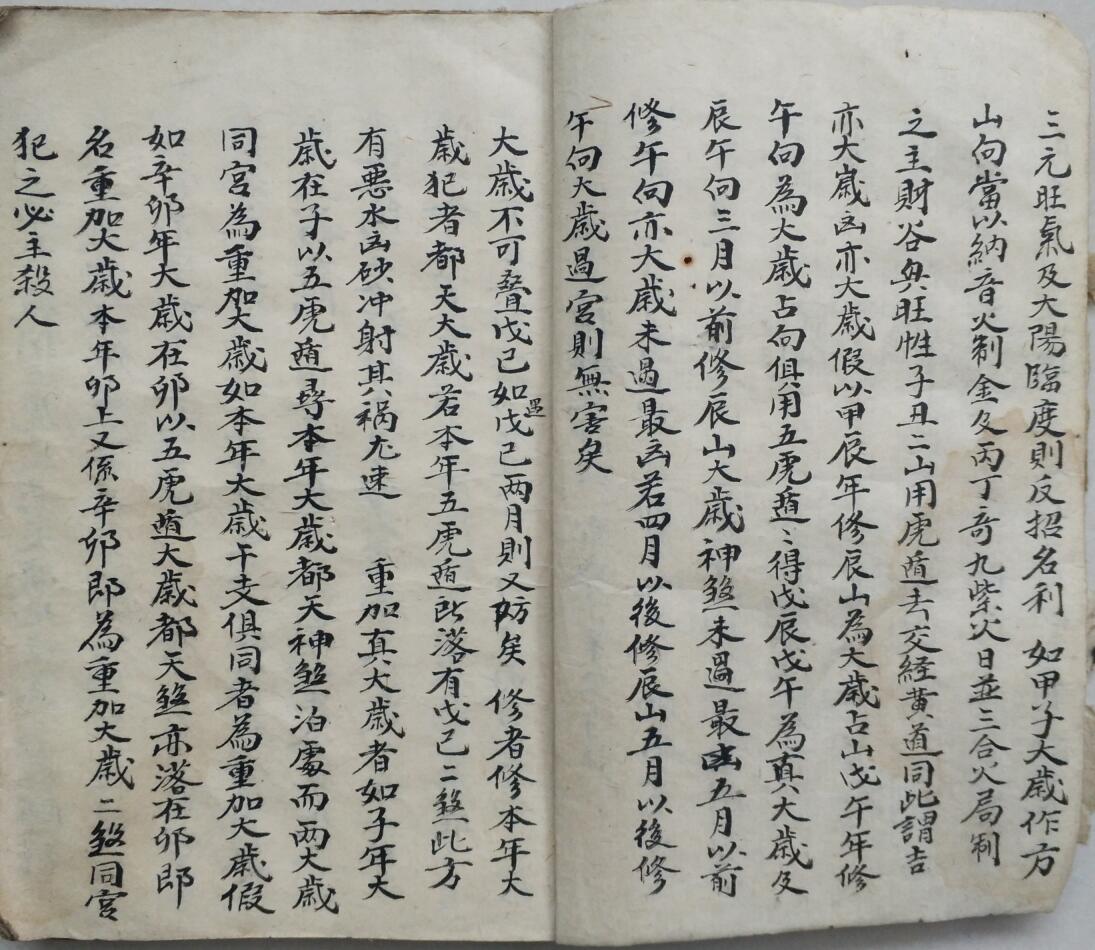 三元旺氣及大陽臨度則反招名利　如甲子大歲作方
山向當以納音火制金及丙丁奇九紫火日並三合火局制
之主財谷與旺性子丑二山用虎遁去交經黄道同此謂吉
亦大嵗凶亦大歲假以甲辰年修辰山為大歲占山戊午年修
午向為大歲占向俱用五虎遁〻得戊辰戊午為真大歲及
辰午向三月以前修辰山大歲神煞未過最凶五月以前
修午向亦大歲未過最凶若四月以後修辰山五月以後修
午向大歲過宮則無害矣
大歲不可疊戊已如遇戊已两月則又妨矣　修者修本年大
歲犯者都天大歲若本年五虎遁所落有戊已二煞此方
有惡水凶砂冲射其禍尤速　　重加真大歲者如子年大
歲在子以五虎遁尋本年大歲都天神煞泊處而两大歲
同宮為重加大歲如本年大歲干支俱同者為重加大歲假
如辛卯年大歲在卯以五虎遁大歲都天煞亦落在卯即
名重加大歲本年卯上又係辛卯即為重加大歲二煞同宮
犯之必主殺人